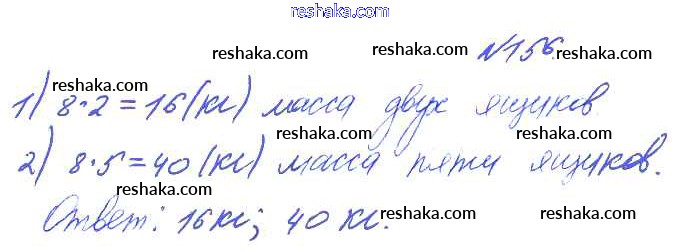 reshaka.com
reshaka.com reshaka.com №156.
reshaka.com
1) 8·2=16(кг) масса двух ящиков.
reshaka.com reshaka.com
2) 8·5=40(кг) масса пяти ящиков.
reshaka.com
Ответ: 16кг; 40 кг.
reshaka.com reshaka.com